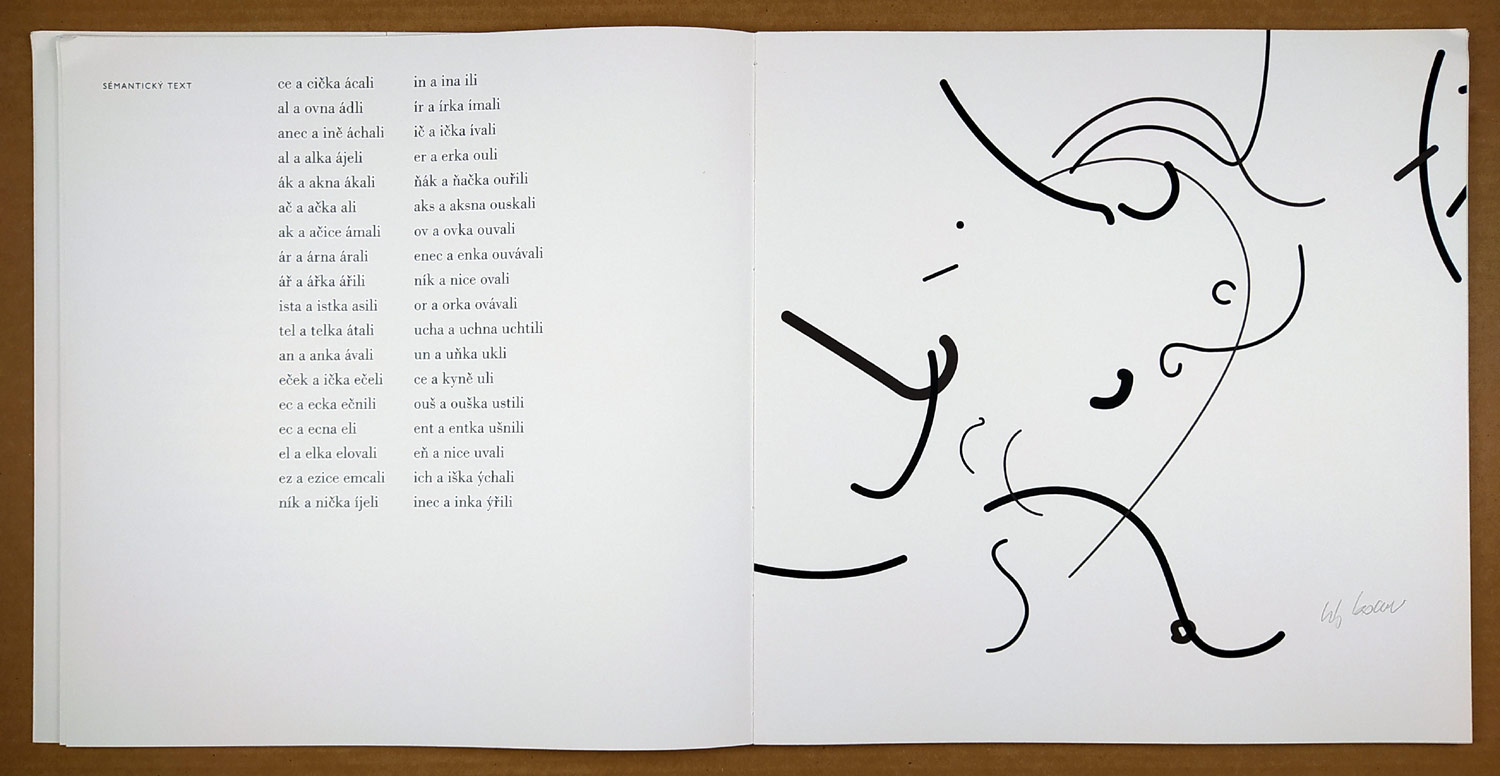 SÉMANTICKÝ TEXT
ce a cička ácali
al a ovna ádli
anec a ině áchali
al a alka ájeli
ák a akna ákali
ač a ačka ali
ak a ačice ámali
ár a árna árali
ář a ářka ářili
ista a istka asili
tel a telka átali
an a anka ávali
eček a ička ečeli
ec a ecka ečnili
ec a ecna eli
el a elka elovali
ez a ezice emcali
ník a nička íjeli
in a ina ili
ír a írka ímali
ič a ička ívali
er a erka ouli
ňák a ňačka ouřili
aks a aksna ouskali
ov a ovka ouvali
enec a enka ouvávali
ník a nice ovali
or a orka ovávali
ucha a uchna uchtili
un a uňka ukli
ce a kyně uli
ouš a ouška ustili
ent a entka ušnili
eň a nice uvali
ich a iška ýchali
inec a inka ýřili